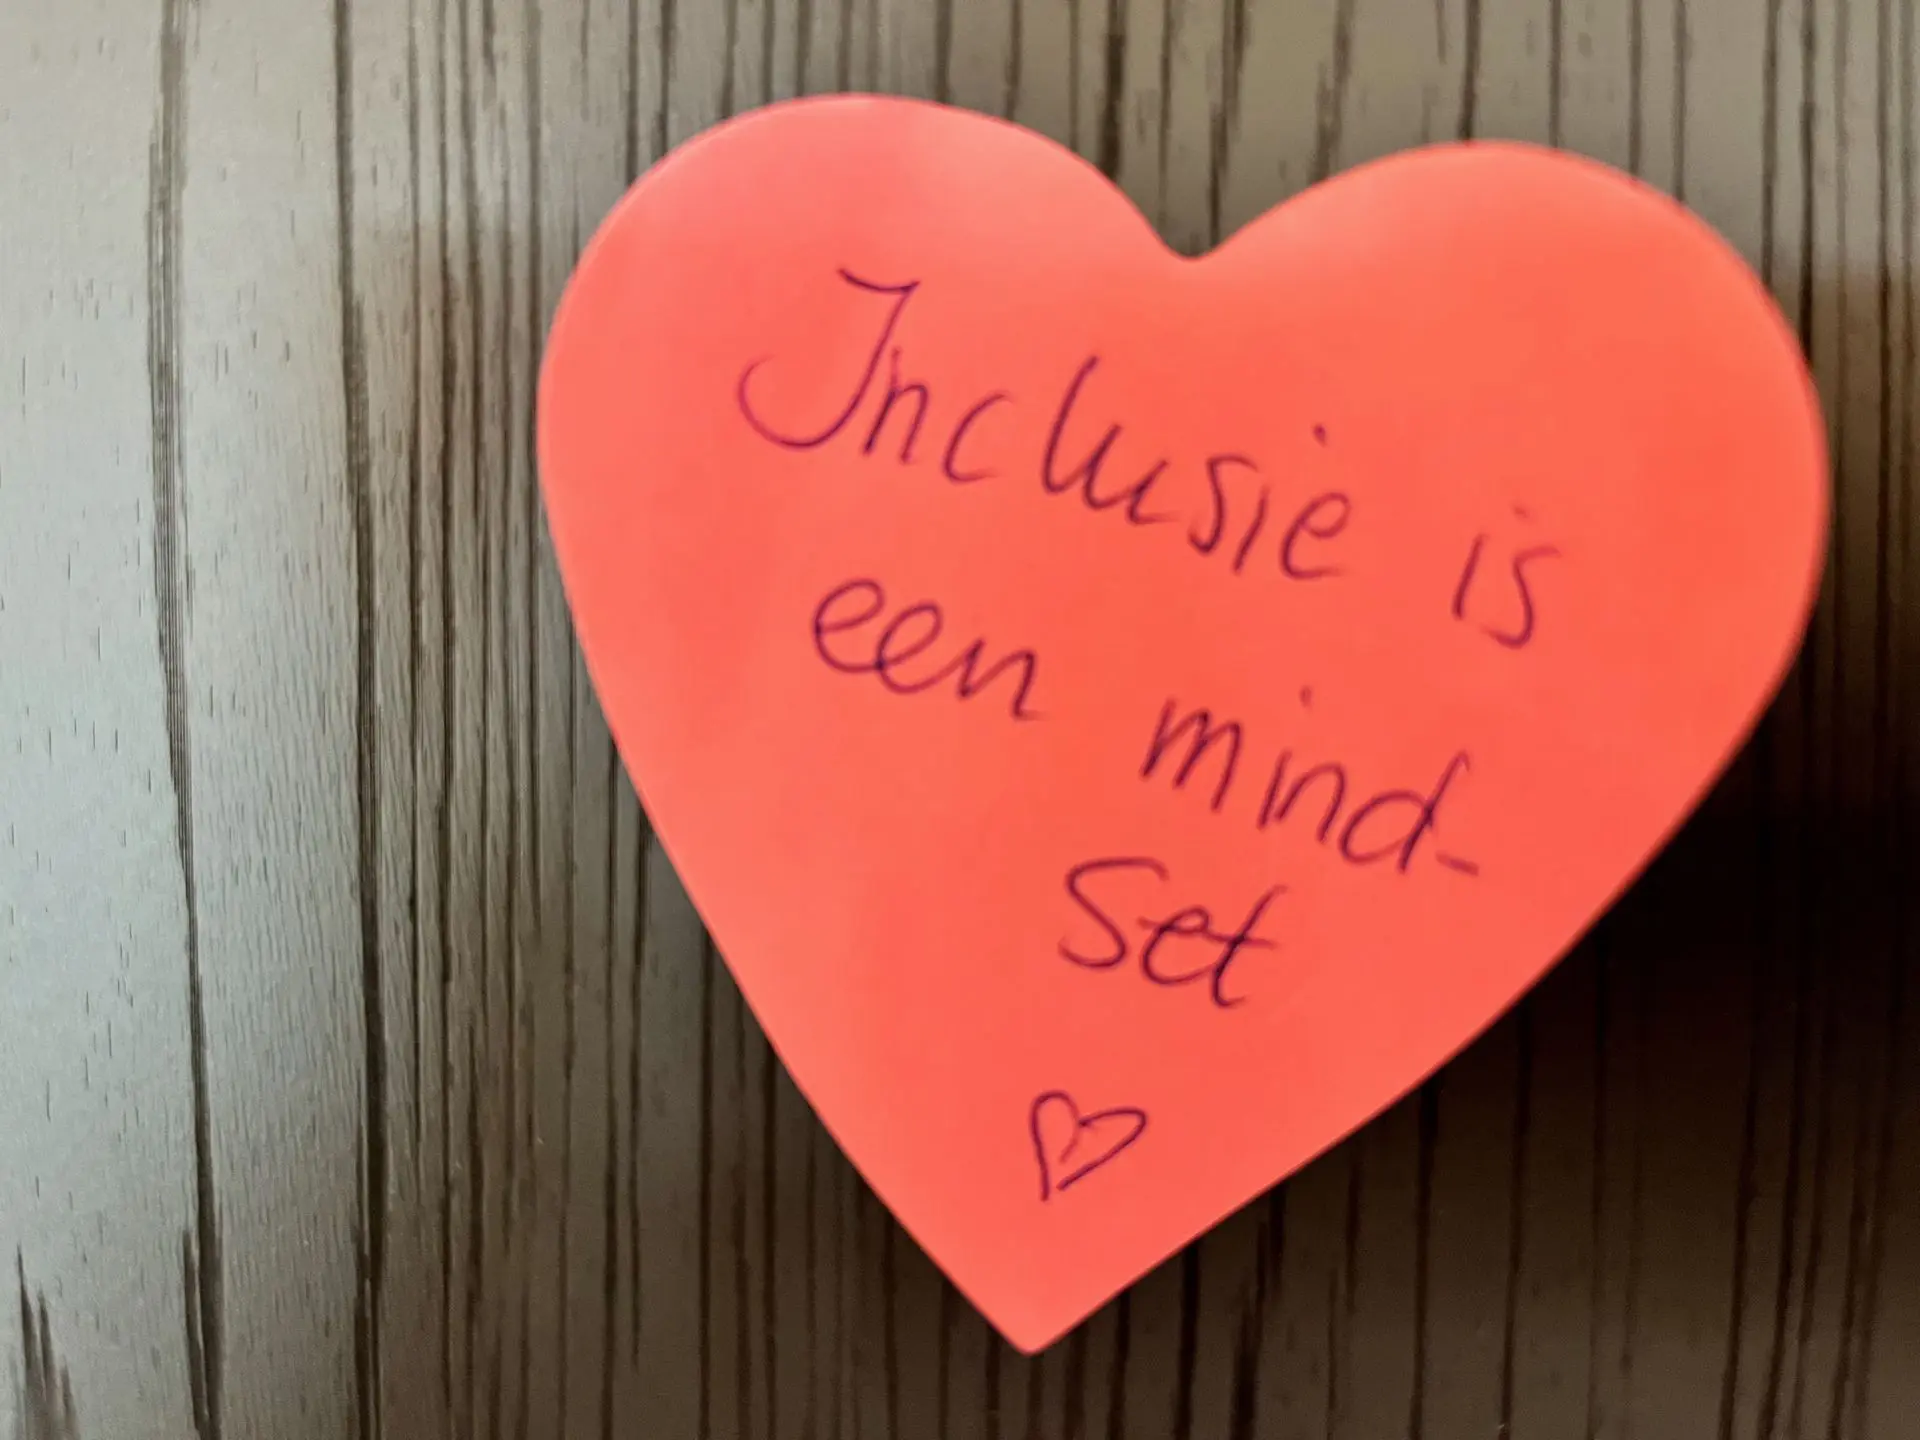 Inclusie is
een mind-
set